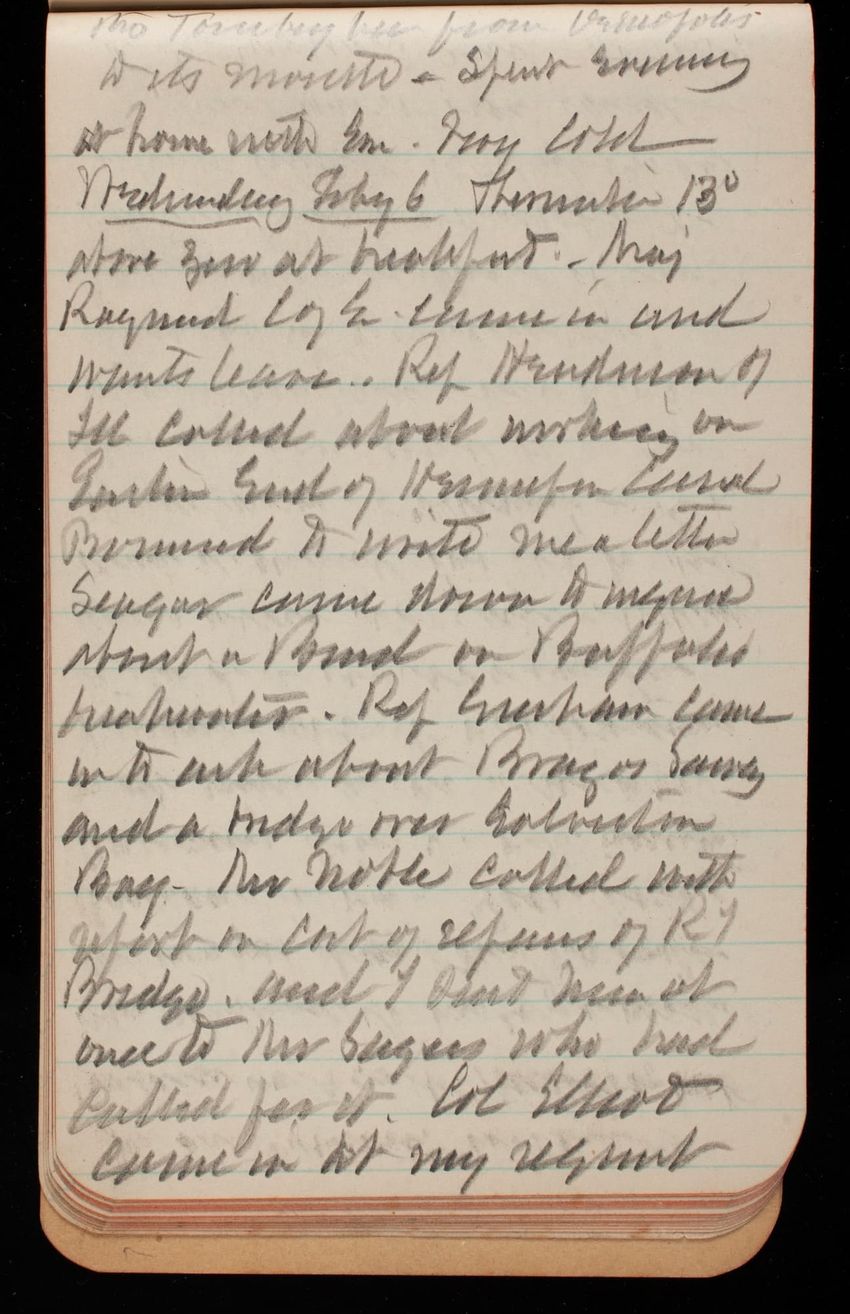 the Tombigbee from Demopolis
to its mouth - Spent Evening
at home with Em. Very Cold
Wednesday Feby 6 Thermometer 13°
above Zero at breakfast. - Maj
Raymond Eng. came in and
wants leave.. Rep Henderson of
Ill called about working on
Eastern End of Hennepin Canal
Promised to write me a letter
Seager came down to
about a Board on Buffalo
breakwater. Rep came
in to ask about Brazos Survey
and a bridge over Galveston
Bay. Mr Noble called with
report on Cost of repairs of R I
Bridge. and I sent him at
once to Mr who had
Called for it. Col Elliot
came in at my request